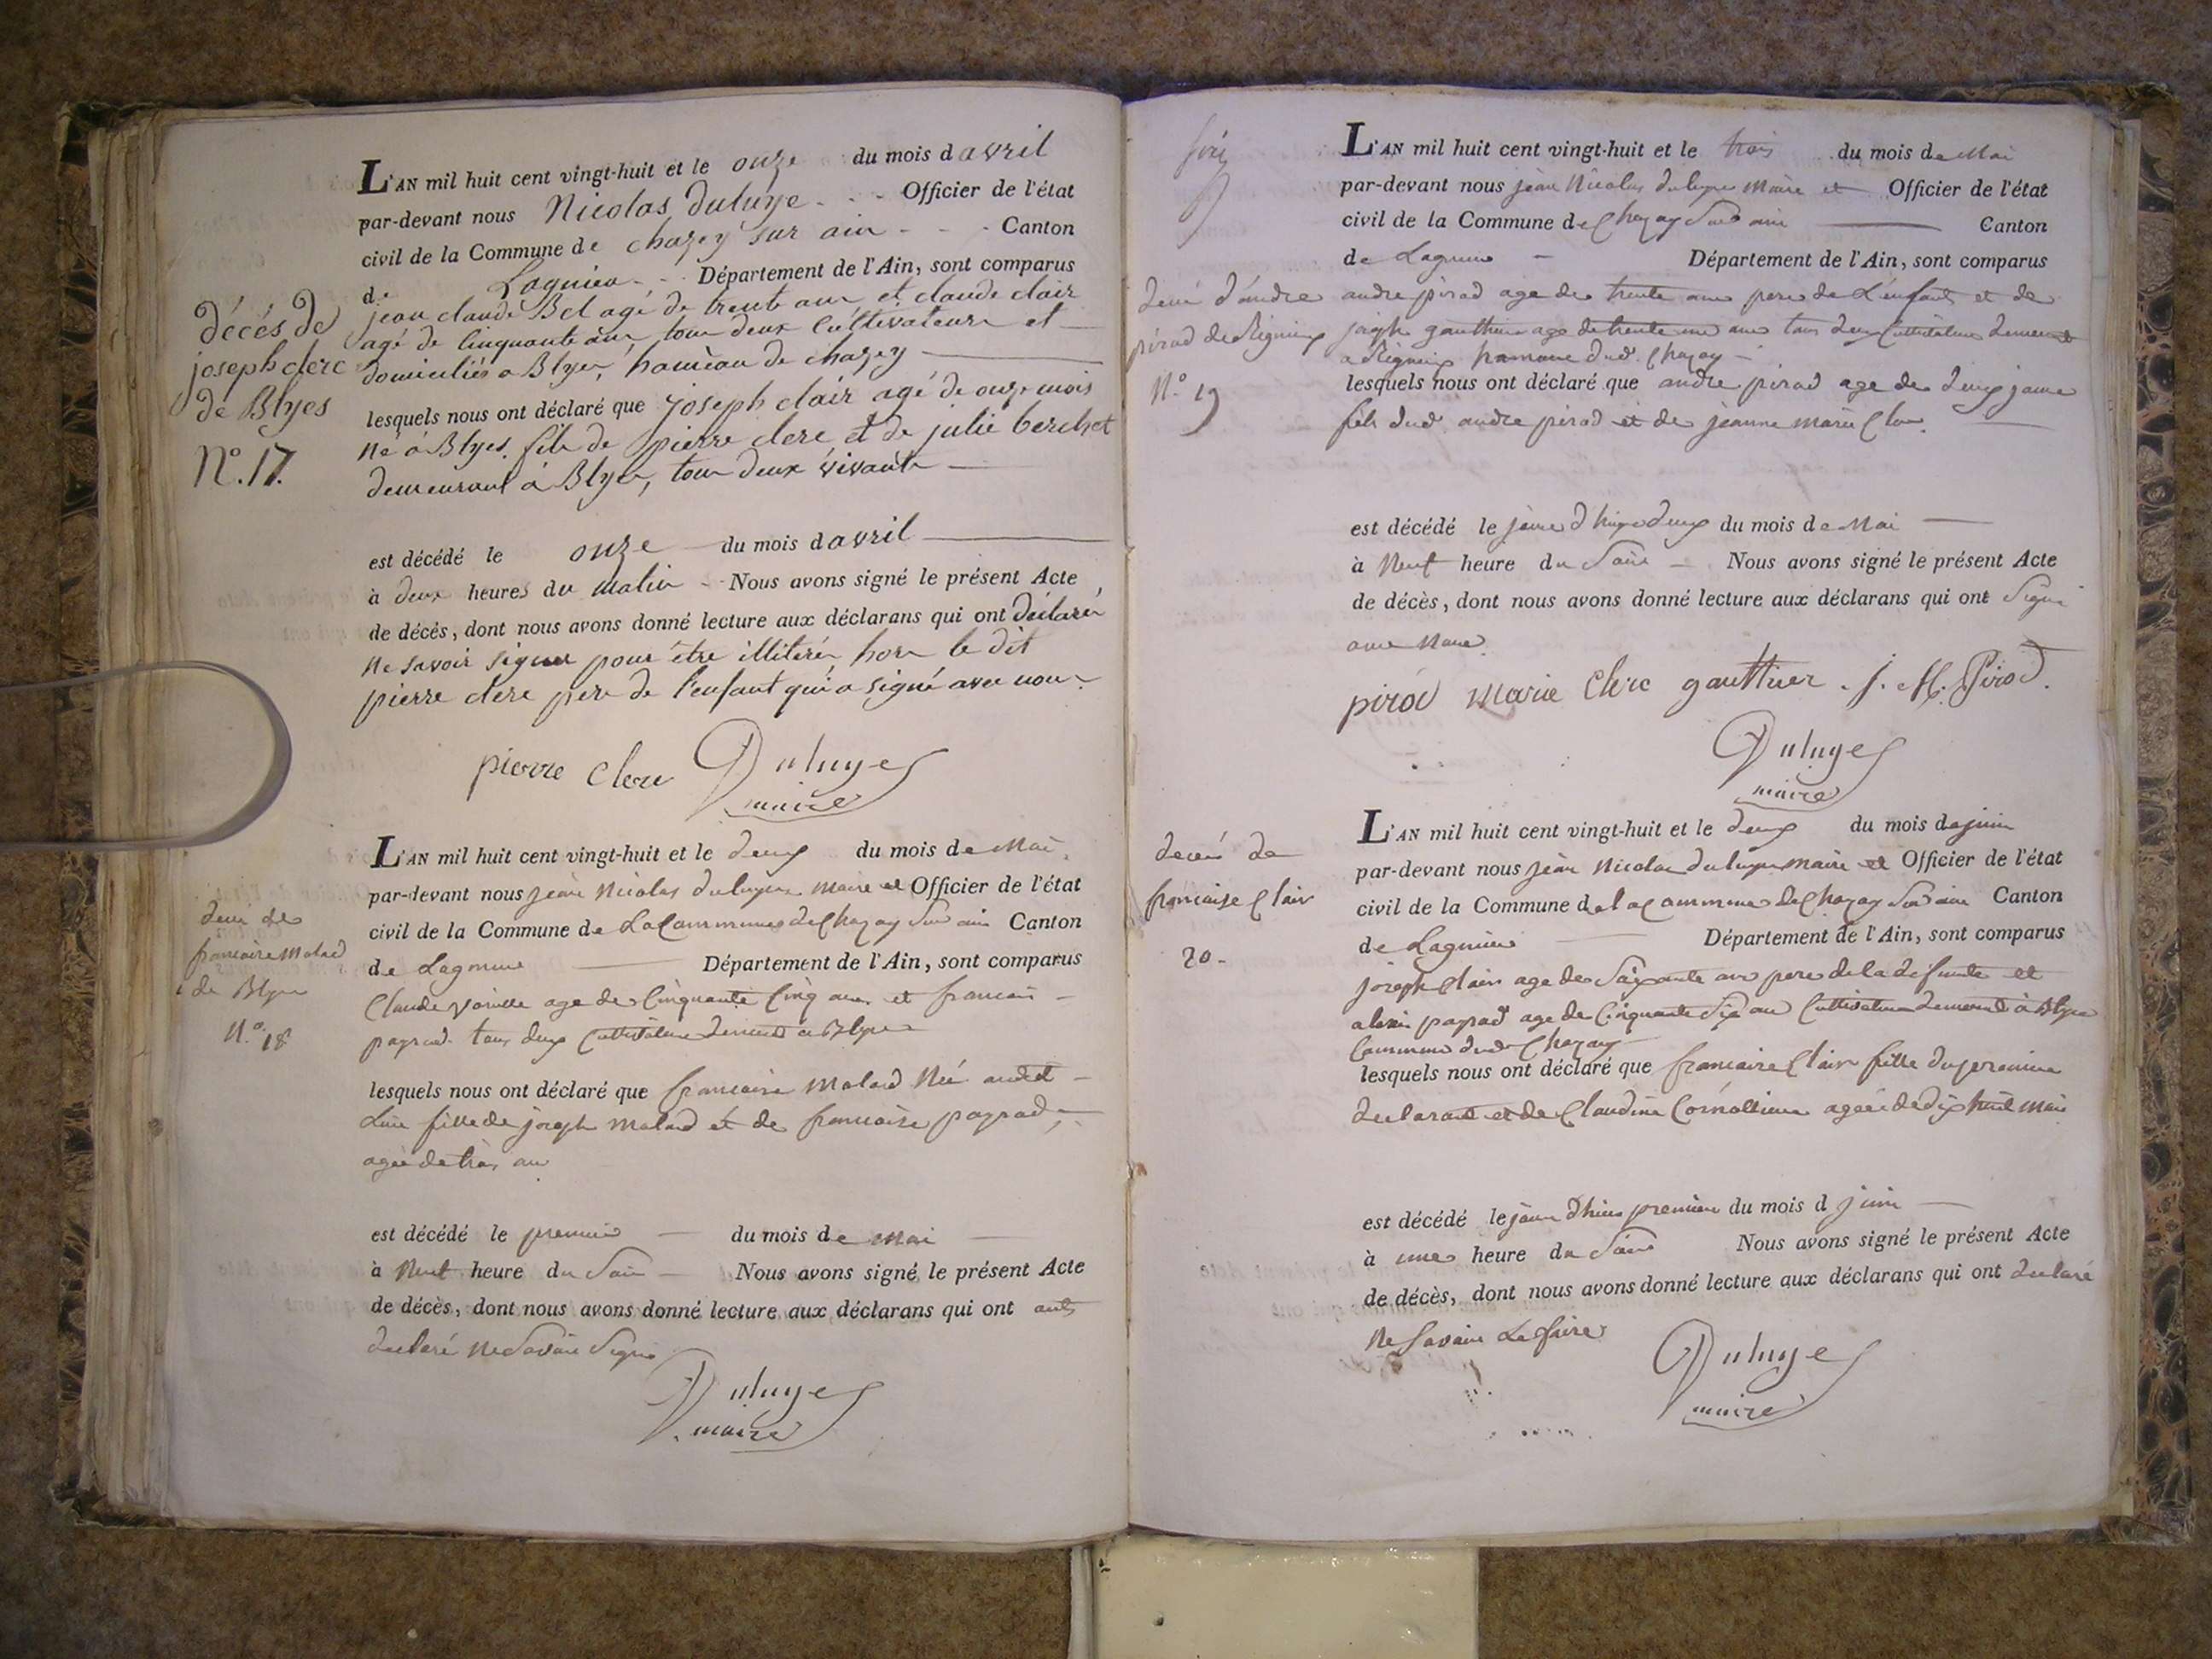 décès de
joseph clerc
de Blyes
N°. 17.
L'AN mil huit cent vingt-huit et le onze du mois d avril
par-devant nous Nicolas duluye Officier de l'état
civil de la Commune de chazey sur ain Canton
de Lagnieu Département de l'Ain, sont comparus
jean claude Bel agé de trente ans et claude clair
agé de cinquante ans, tous deux cultivateurs et
domiciliés a Blyes, hameau de chazey
lesquels nous ont déclaré que joseph clair agé de onze mois
né à Blyes, fils de pierre clerc et de julie berchet
demeurant à Blyes, tous deux vivants
est décédé le onze du mois d avril
à deux heures du matin Nous avons signé le présent Acte
de décés, dont nous avons donné lecture aux déclarans qui ont déclarés
ne savoir signer pour être illiterés hors le dit
pierre clerc pere de l'enfant qui a signé avec nous.
pierre clerc Duluye
maire
decé de
francoise Molard
de Blyes
N°. 18
L'AN mil huit cent vingt-huit et le deux du mois de Mai
par-devant nous jean Nicolas duluye maire et Officier de l'état
civil de la Commune de La Commune de Chazay sur ain Canton
de Lagnieu Département de l'Ain, sont comparus
Claude age de Cinquante Cinq ans et francois
payrad tous deux Cultivateurs demt a Blyes
lesquels nous ont déclaré que francoise Molard Née audit
Lieu fille de joseph Molard et de francoise payrad,
agée de trois ans
est décédé le premier du mois de Mai
à Neuf heure du Soir Nous avons signé le présent Acte
de décès, dont nous avons donné lecture aux déclarans qui ont
declaré Ne Savoir Signé
Duluye
maire
decé d'andre
pirod de Rignieux
N°. 19
L'AN mil huit cent vingt-huit et le trois du mois de Mai
par-devant nous jean Nicolas duluye Maire et Officier de l'état
civil de la Commune de Chazay Sur ain Canton
de Lagnieu Département de l'Ain, sont comparus
andre pirod age de trente ans pere de L'enfant et de
joseph gauthier age de trente un ans tous deux Cultivateurs demeurt
a Rignieux hameau dud. Chazay
lesquels nous ont déclaré que andre pirod age de deux jours
fils dud. andre pirod et de jeanne marie Clerc
est décédé le jour d'hier deux du mois de Mai
à Neuf heure du Soir Nous avons signé le présent Acte
de décès, dont nous avons donné lecture aux déclarans qui ont Signé
avec Nous.
pirod Marie Clerc gautthier J. M. Pirod.
Duluye
maire
decés de
francoise Clair
20.
L'AN mil huit cent vingt-huit et le deux du mois de juin
par-devant nous jean Nicolas duluye maire et Officier de l'état
civil de la Commune de la Commune de Chazay Sur ain Canton
de Lagnieu Département de l'Ain, sont comparus
joseph Clair age de Soixante ans pere de la defunte et
payrad age de Cinquante Six ans Cultivateurs demeurt à Blyes
Commune dud. Chazay
lesquels nous ont déclaré que francoise Clair fille du premier
declarant et de Claudine agée de dix huit mois
est décédé le jour d'hier premier du mois d juin
à une heure du Soir Nous avons signé le présent Acte
de décès, dont nous avons donné lecture aux déclarans qui ont declaré
Ne Savoir Le faire
Duluye
maire